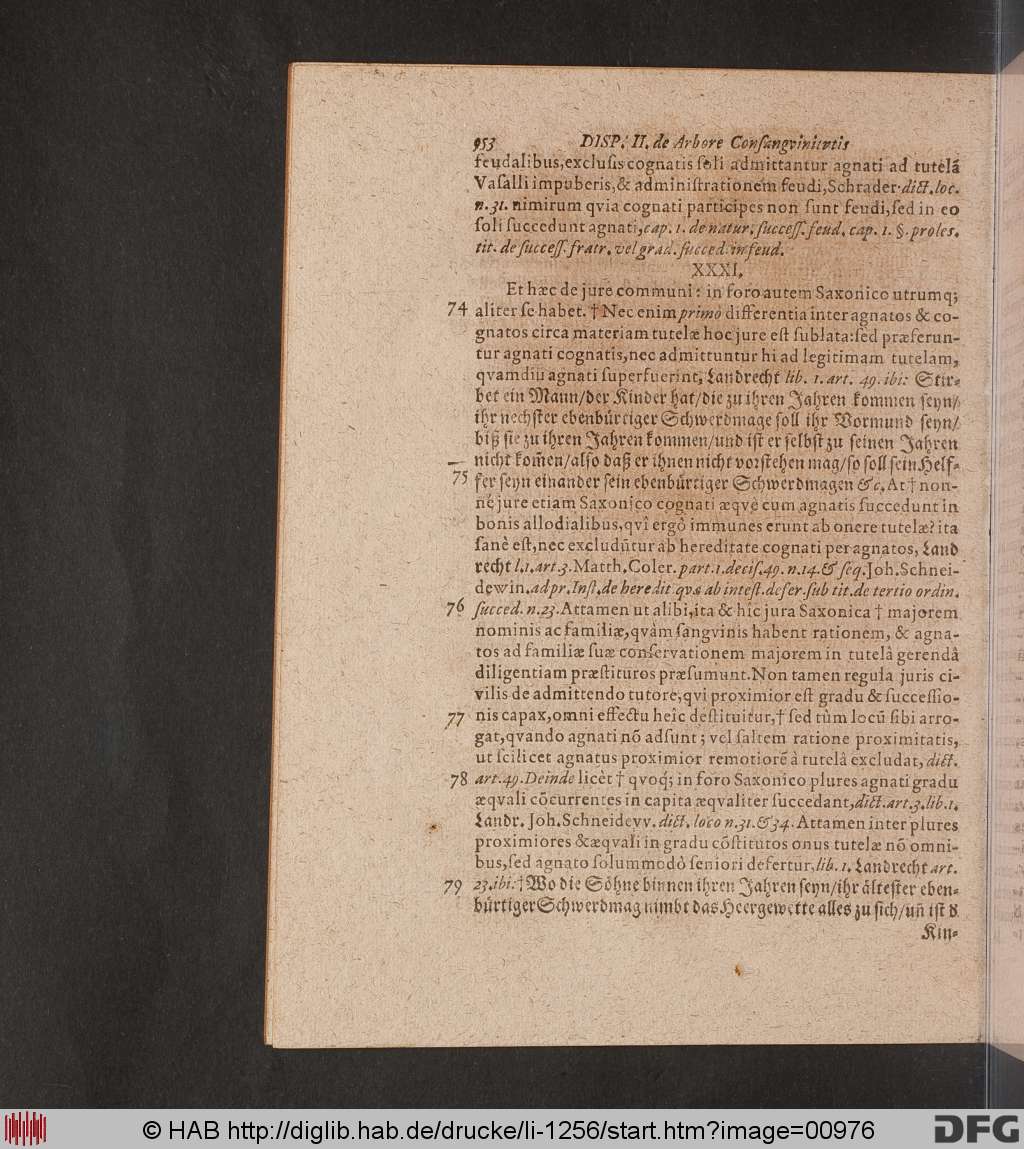 953 DISP. II. de Arbore Consangvinitatis
feudalibus,exclusis cognatis soli admittantur agnati ad tutelã
Vasalli impuberis,& administrationem feudi,Schrader.dict.loc.
n.31. nimirum qvia cognati participes non sunt feudi,sed in eo
soli succedunt agnati,cap. 1. de natur. success. feud. cap. 1. §. proles.
tit. de success. fratr. vel grad. succed. in feud.
XXXI.
Et hæc de jure communi: in foro autem Saxonico utrumq;
74 aliter se habet. † Nec enim primò differentia inter agnatos & co-
gnatos circa materiam tutelæ hoc jure est sublata:sed præferun-
tur agnati cognatis,nec admittuntur hi ad legitimam tutelam,
qvamdiu agnati superfuerint, Landrecht lib. 1. art. 49. ibi: Stir-
bet ein Mann/der Kinder hat/die zu ihren Jahren kommen seyn/
ihr nechster ebenbürtiger Schwerdmage soll ihr Vormund seyn/
biß sie zu ihren Jahren kommen/und ist er selbst zu seinen Jahren
nicht kom̃en/also daß er ihnen nicht vorstehen mag/so soll sein Helf-
75 fer seyn einander sein ebenbürtiger Schwerdmagen &c. At † non-
nè jure etiam Saxonico cognati æqvè cum agnatis succedunt in
bonis allodialibus,qvî ergò immunes erunt ab onere tutelæ? ita
sanè est,nec excludũtur ab hereditate cognati per agnatos, Land
recht l.1.art.3.Matth.Coler.part.1.decis.49.n.14.& seq.Joh.Schnei-
dewin.ad pr. Inst. de heredit. qvæ ab intest. defer. sub tit. de tertio ordin.
76 succed. n.23. Attamen ut alibi,ita & hîc jura Saxonica † majorem
nominis ac familiæ,qvàm sangvinis habent rationem, & agna-
tos ad familiæ suæ conservationem majorem in tutelâ gerendâ
diligentiam præstituros præsumunt.Non tamen regula juris ci-
vilis de admittendo tutore,qvi proximior est gradu & successio-
77 nis capax,omni effectu heîc destituitur,† sed tùm locũ sibi arro-
gat,qvando agnati nõ adsunt; vel saltem ratione proximitatis,
ut scilicet agnatus proximior remotiorẽ à tutelâ excludat, dict.
78 art.49. Deinde licèt † qvoq; in foro Saxonico plures agnati gradu
æqvali cõcurrentes in capita æqvaliter succedant,dict.art.3.lib.1.
Landr. Joh.Schneidevv. dict. loco n.31.&34. Attamen inter plures
proximiores &æqvali in gradu cõstitutos onus tutelæ nõ omni-
bus,sed agnato solummodò seniori defertur,lib. 1. Landrecht art.
79 23. ibi: † Wo die Söhne binnen ihren Jahren seyn/ihr ältester eben-
bürtiger Schwerdmag nimbt das Heergewette alles zu sich/uñ ist d
Kin-
© HAB http://diglib.hab.de/drucke/li-1256/start.htm?image=00976
DFG